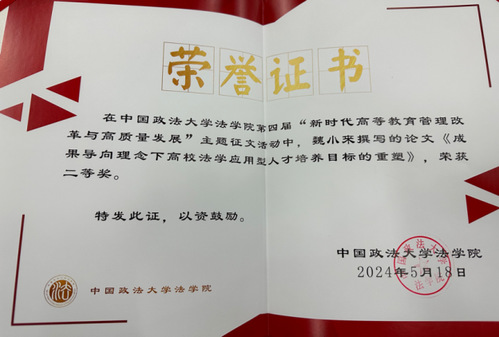 荣誉证书
在中国政法大学法学院第四届“新时代高等教育管理改
革与高质量发展”主题征文活动中，魏小来撰写的论文《成
果导向理念下高校法学应用型人才培养目标的重塑》，荣获
二等奖。
特发此证，以资鼓励。
中国政法大学法学院
2024年5月18日
中国政法大学法学院